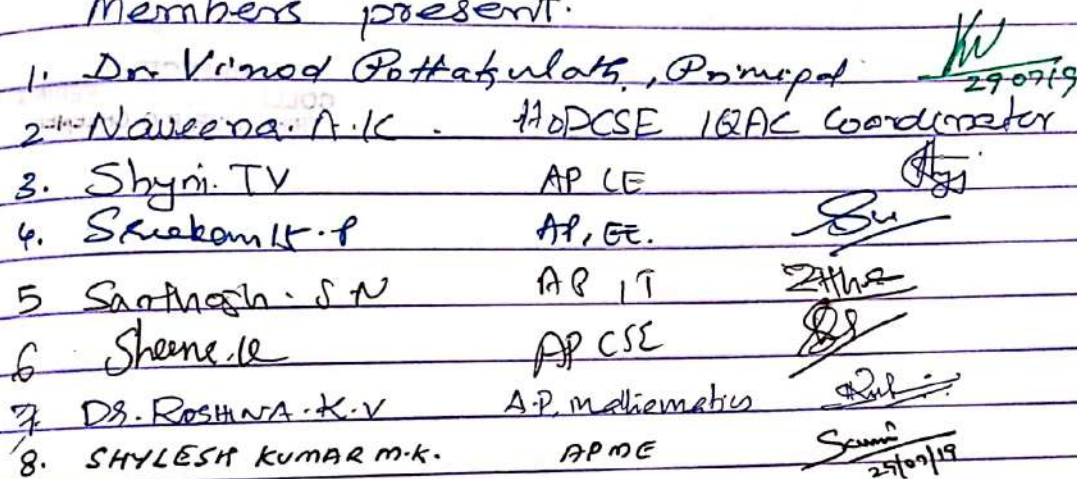 Members present.
1. Dr. Vinod Pottakulath, Principal 29/07/19
2. Naveena. A.K. HODCSE IQAC Coordinator
3. Shyni. TV AP CE
4. AP, EE.
5 Santhosh. S N AP IT
6 Sheena. K AP CSE
7. DR. ROSHINA. K. V A.P. mathematics
8. SHYLESH KUMAR M.K. AP ME 29/07/19